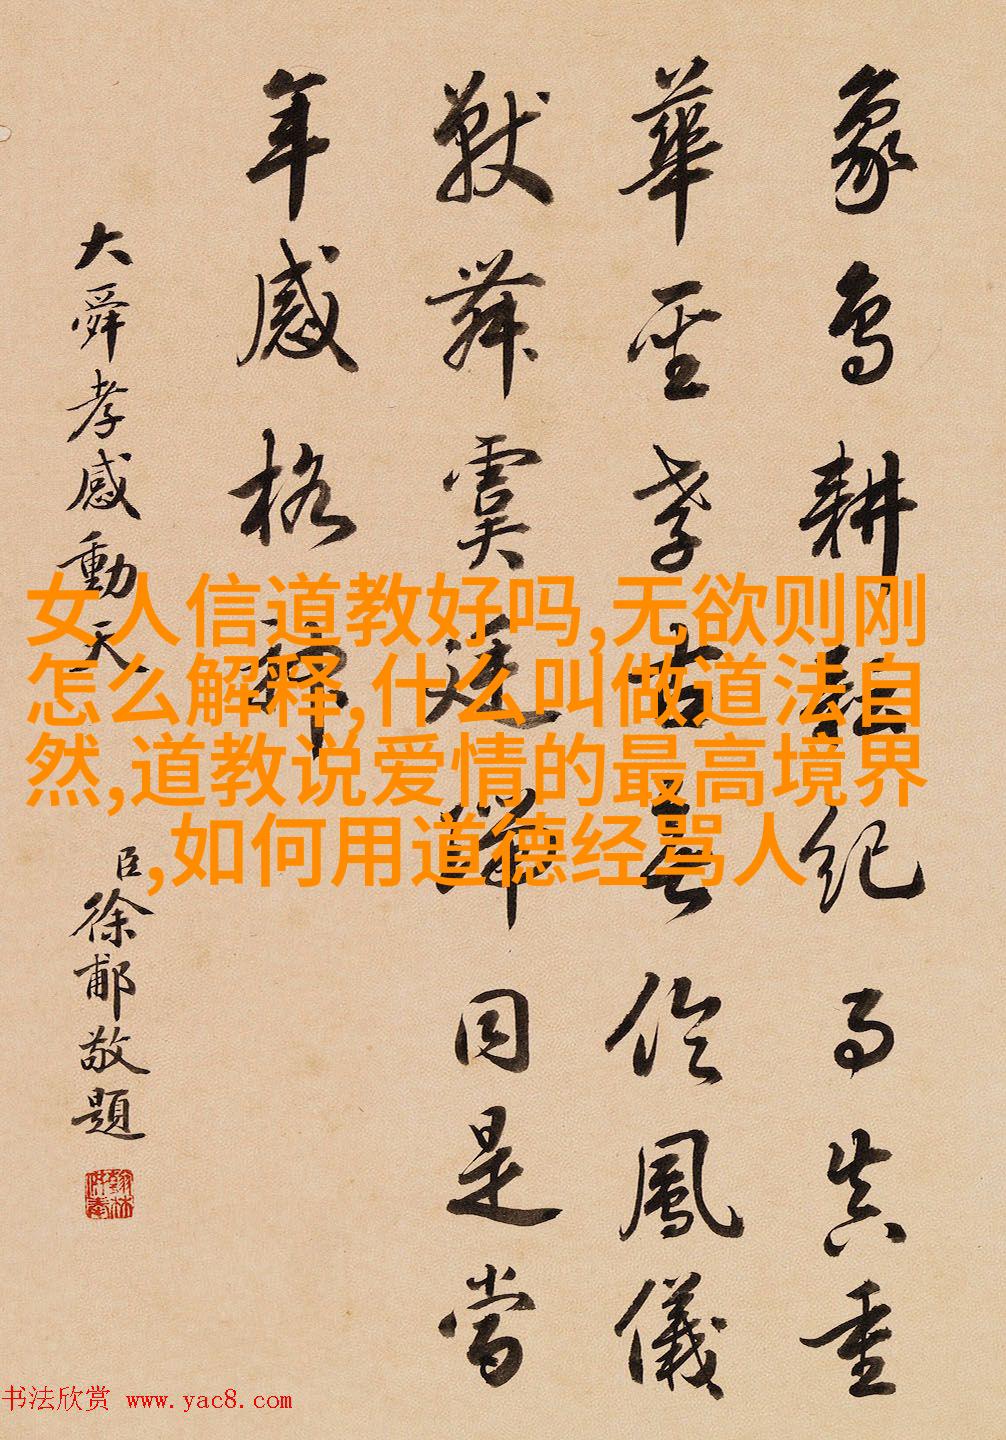 象鳥耕耘紀事真重
華聖孝古無倫鳳儀
獸舞虞廷 同是當
年感格神
大舜孝感動天
臣徐郙敬題
女人信道教好吗,无欲则刚
怎么解释,什么叫做道法自
然,道教说爱情的最高境界
,如何用道德经骂人
书法欣赏 www.yac8.com